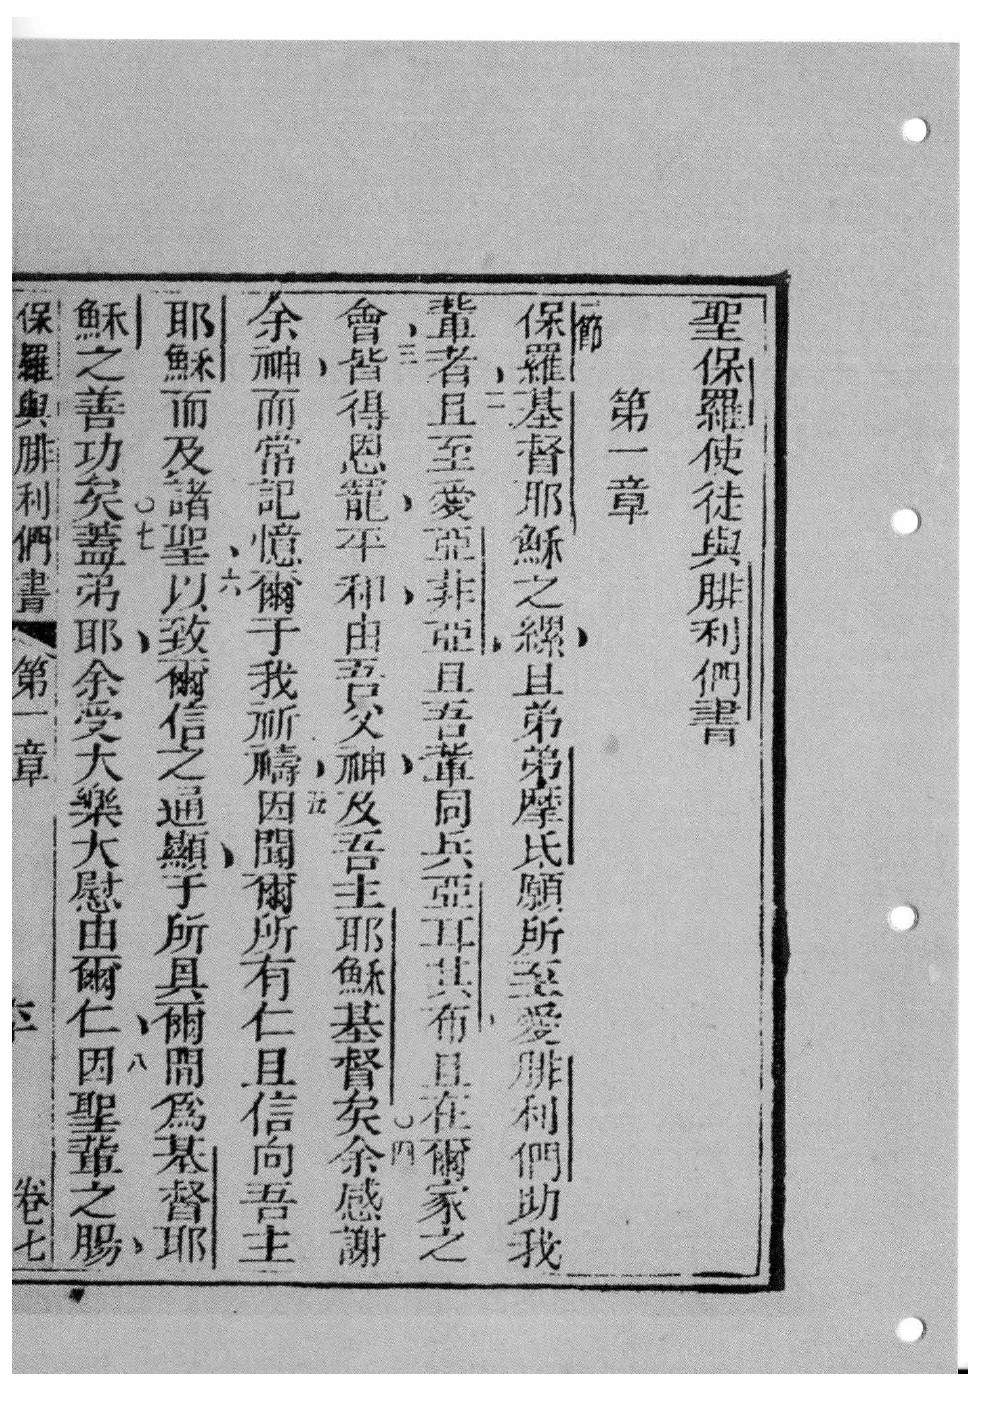 聖保羅使徒與腓利們書
第一章
節
保羅基督耶穌之縲且弟弟摩氐願所至愛腓利們助我
二
輩者且至愛亞非亞且吾輩同兵亞耳其布且在爾家之
三
會皆得恩寵平和由吾父神及吾主耶穌基督矣○余感謝
四
余神而常記憶爾于我祈禱因聞爾所有仁且信向吾主
五
耶穌而及諸聖以致爾信之通顯于所具爾間為基督耶
六
穌之善功矣○蓋弟耶余受大樂大慰由爾仁因聖輩之腸
七
八
保羅與腓利們書 第一章 卷七